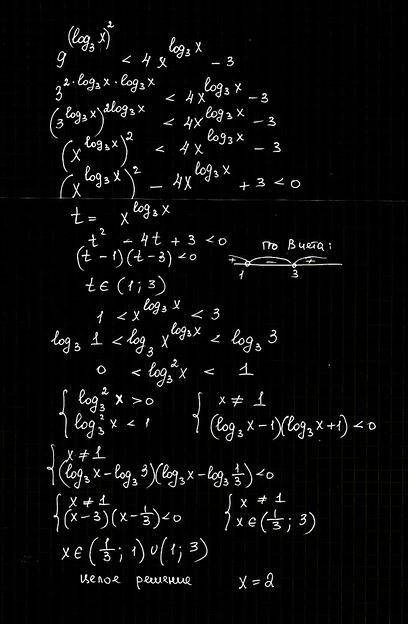 9^{(log_3 x)^2} < 4x^{log_3 x} - 3
3^{2·log_3 x·log_3 x} < 4x^{log_3 x} - 3
(3^{log_3 x})^{2log_3 x} < 4x^{log_3 x} - 3
(x^{log_3 x})^2 < 4x^{log_3 x} - 3
(x^{log_3 x})^2 - 4x^{log_3 x} + 3 < 0
t = x^{log_3 x}
t^2 - 4t + 3 < 0 по Виета:
(t-1)(t-3) < 0 + - + 1 3
t ∈ (1; 3)
1 < x^{log_3 x} < 3
log_3 1 < log_3 x^{log_3 x} < log_3 3
0 < log_3^2 x < 1
{ log_3^2 x > 0 { x ≠ 1
log_3^2 x < 1 (log_3 x - 1)(log_3 x + 1) < 0
{ x ≠ 1
(log_3 x - log_3 3)(log_3 x - log_3 1/3) < 0
{ x ≠ 1 { x ≠ 1
(x-3)(x-1/3) < 0 x ∈ (1/3; 3)
x ∈ (1/3; 1) ∪ (1; 3)
целое решение x = 2